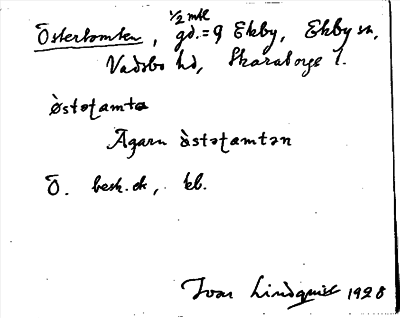 Östertomten, 1/2 mtl gd. = 9 Ekby, Ekby sn,
Vadsbo hd, Skaraborgs l.
östəţamtə
Ägarn östəţamtən
Ö. besk. ek, kb.
Ivar Lindquist 1928